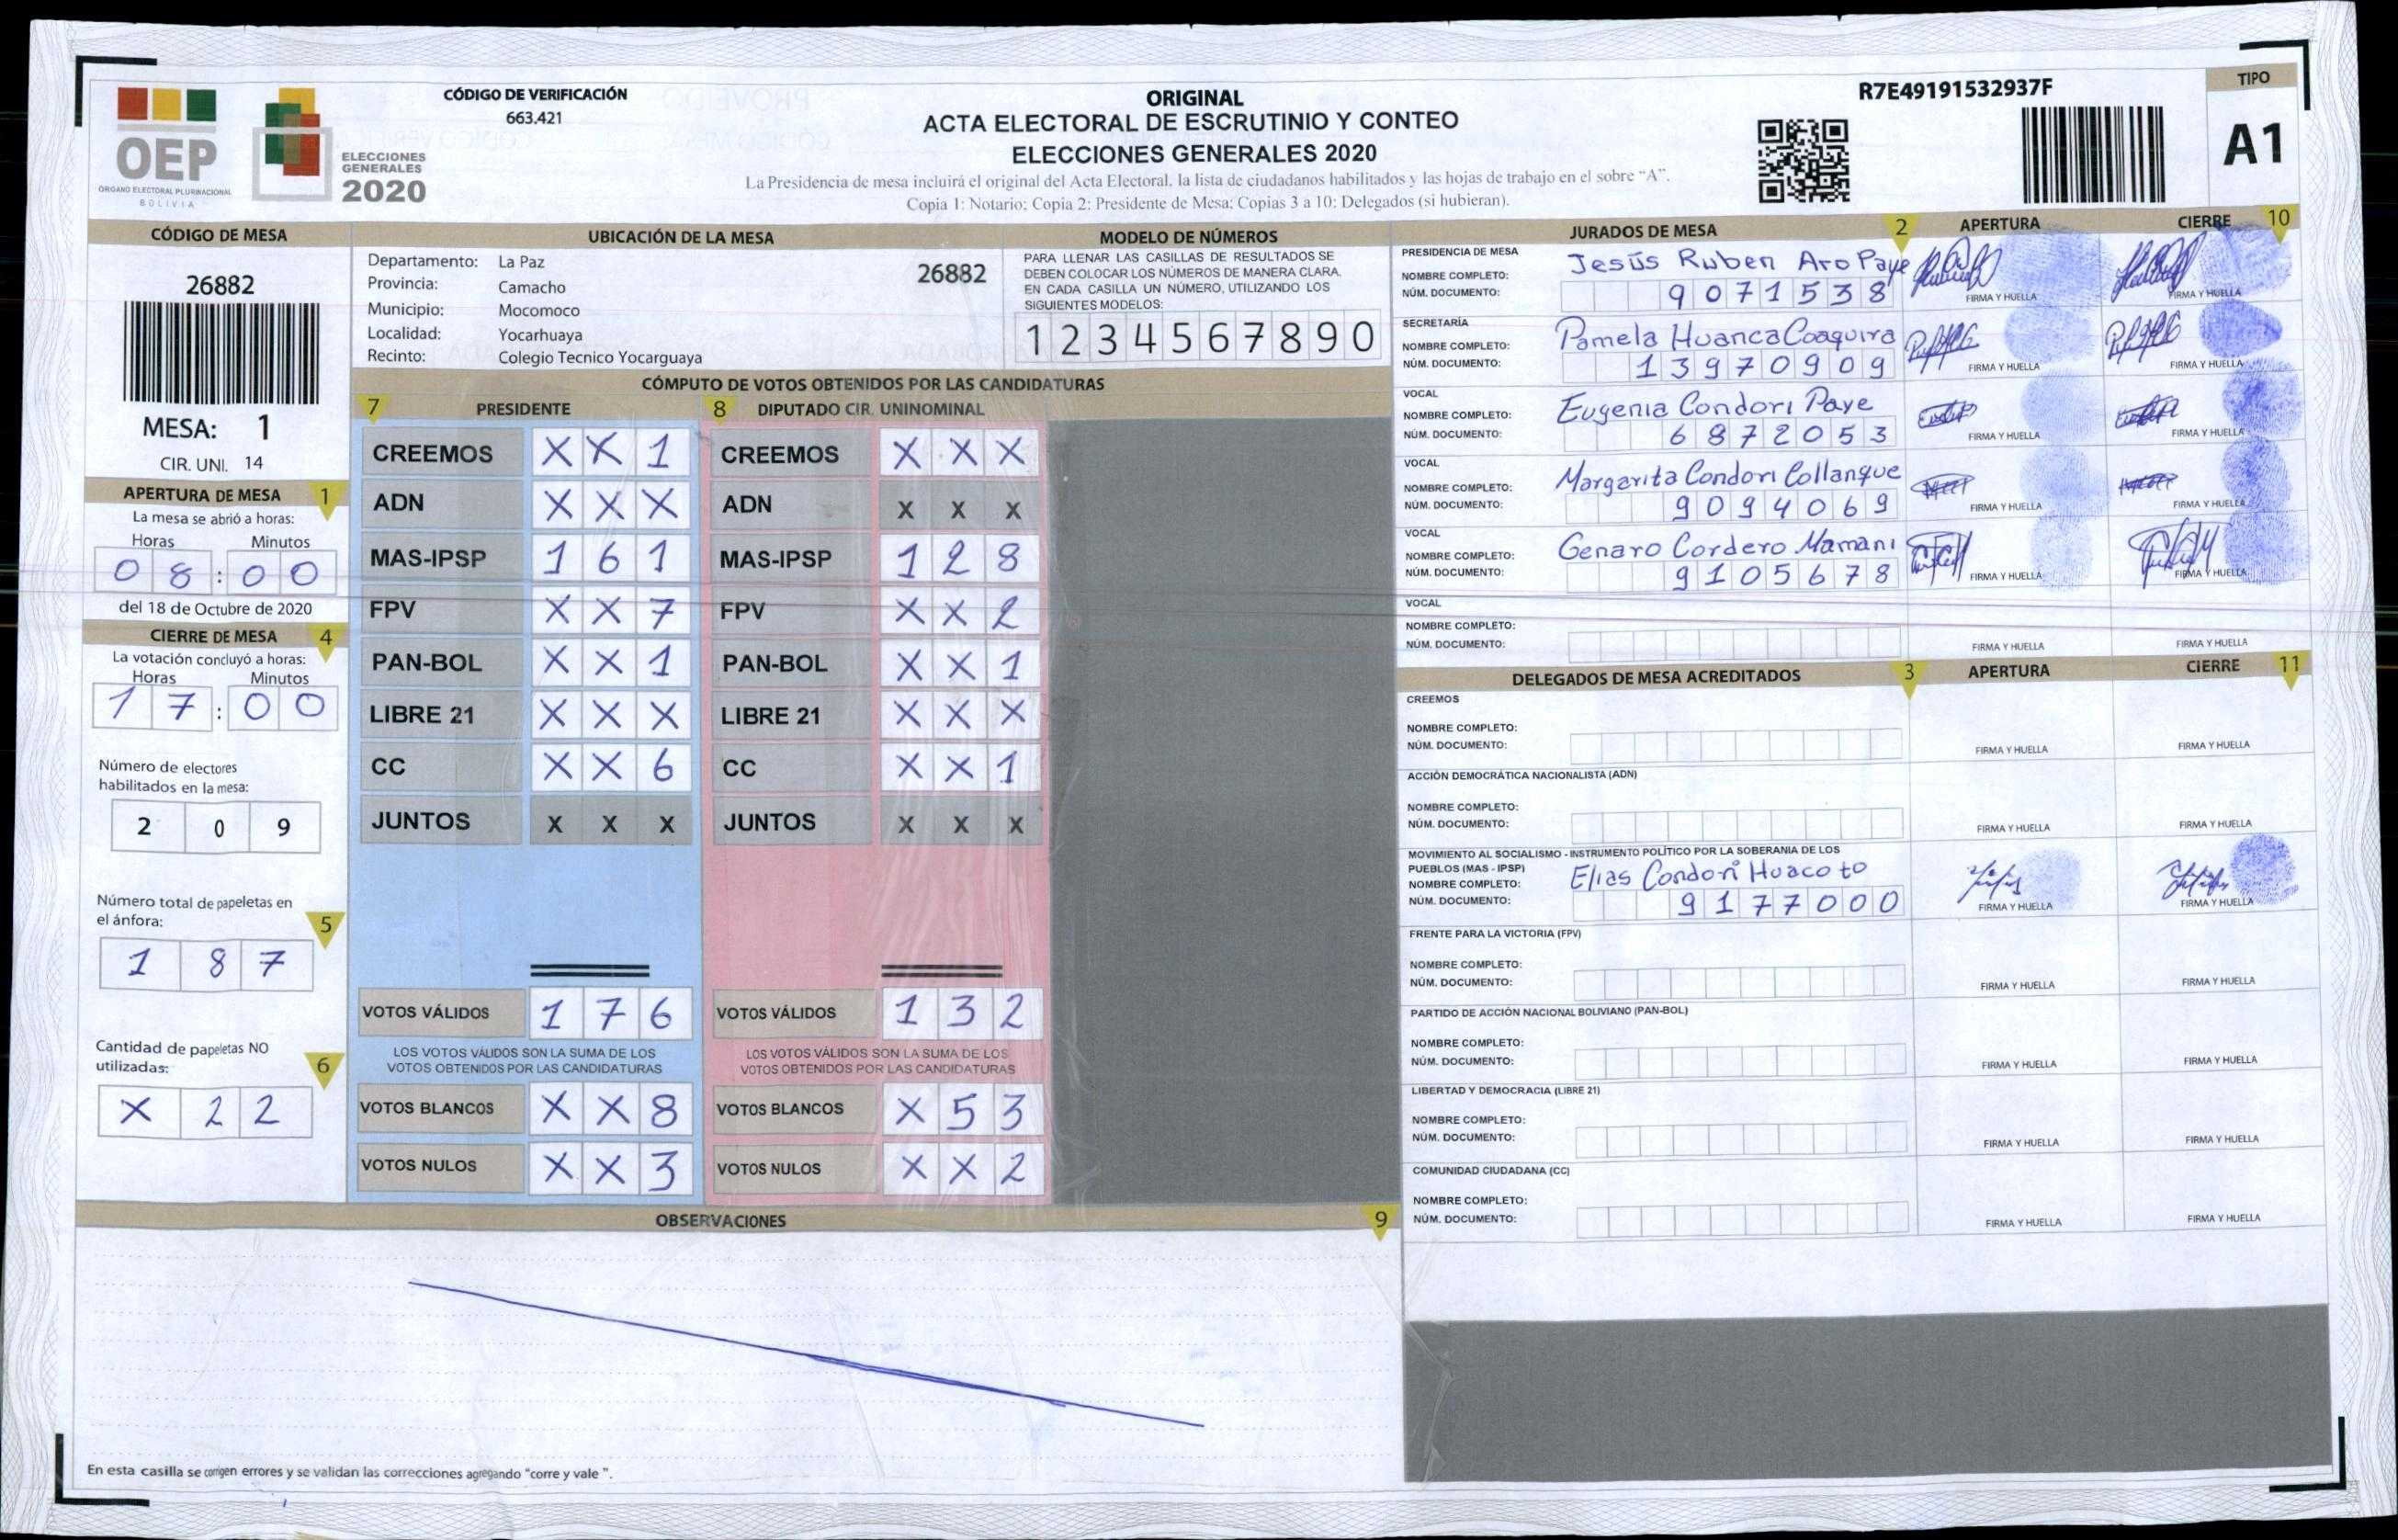 CÓDIGO DE VERIFICACIÓN
663.421
ORIGINAL
ACTA ELECTORAL DE ESCRUTINIO Y CONTEO
ELECCIONES GENERALES 2020
La Presidencia de mesa incluirá el original del Acta Electoral, la lista de ciudadanos habilitados y las hojas de trabajo en el sobre "A".
Copia 1: Notario; Copia 2: Presidente de Mesa; Copias 3 a 10: Delegados (si hubieran).
R7E49191532937F
TIPO
A1
OEP
ÓRGANO ELECTORAL PLURINACIONAL
BOLIVIA
ELECCIONES
GENERALES
2020
CÓDIGO DE MESA
26882
MESA: 1
CIR. UNI. 14
APERTURA DE MESA 1
La mesa se abrió a horas:
Horas Minutos
0 8 : 0 0
del 18 de Octubre de 2020
CIERRE DE MESA 4
La votación concluyó a horas:
Horas Minutos
1 7 : 0 0
Número de electores
habilitados en la mesa:
2 0 9
Número total de papeletas en
el ánfora: 5
1 8 7
Cantidad de papeletas NO
utilizadas: 6
X 2 2
UBICACIÓN DE LA MESA
Departamento: La Paz 26882
Provincia: Camacho
Municipio: Mocomoco
Localidad: Yocarhuaya
Recinto: Colegio Tecnico Yocarguaya
MODELO DE NÚMEROS
PARA LLENAR LAS CASILLAS DE RESULTADOS SE
DEBEN COLOCAR LOS NÚMEROS DE MANERA CLARA.
EN CADA CASILLA UN NÚMERO, UTILIZANDO LOS
SIGUIENTES MODELOS:
1 2 3 4 5 6 7 8 9 0
CÓMPUTO DE VOTOS OBTENIDOS POR LAS CANDIDATURAS
7 PRESIDENTE 8 DIPUTADO CIR. UNINOMINAL
CREEMOS X X 1 CREEMOS X X X
ADN X X X ADN X X X
MAS-IPSP 1 6 1 MAS-IPSP 1 2 8
FPV X X 7 FPV X X 2
PAN-BOL X X 1 PAN-BOL X X 1
LIBRE 21 X X X LIBRE 21 X X X
CC X X 6 CC X X 1
JUNTOS X X X JUNTOS X X X
VOTOS VÁLIDOS 1 7 6 VOTOS VÁLIDOS 1 3 2
LOS VOTOS VÁLIDOS SON LA SUMA DE LOS LOS VOTOS VÁLIDOS SON LA SUMA DE LOS
VOTOS OBTENIDOS POR LAS CANDIDATURAS VOTOS OBTENIDOS POR LAS CANDIDATURAS
VOTOS BLANCOS X X 8 VOTOS BLANCOS X 5 3
VOTOS NULOS X X 3 VOTOS NULOS X X 2
OBSERVACIONES 9
En esta casilla se corrigen errores y se validan las correcciones agregando "corre y vale ".
JURADOS DE MESA 2 APERTURA CIERRE 10
PRESIDENCIA DE MESA
NOMBRE COMPLETO: Jesús Ruben Aro Paye
NÚM. DOCUMENTO: 9 0 7 1 5 3 8 FIRMA Y HUELLA FIRMA Y HUELLA
SECRETARÍA
NOMBRE COMPLETO: Pamela Huanca Coaquira
NÚM. DOCUMENTO: 1 3 9 7 0 9 0 9 FIRMA Y HUELLA FIRMA Y HUELLA
VOCAL
NOMBRE COMPLETO: Eugenia Condori Paye
NÚM. DOCUMENTO: 6 8 7 2 0 5 3 FIRMA Y HUELLA FIRMA Y HUELLA
VOCAL
NOMBRE COMPLETO: Margarita Condori Collanque
NÚM. DOCUMENTO: 9 0 9 4 0 6 9 FIRMA Y HUELLA FIRMA Y HUELLA
VOCAL
NOMBRE COMPLETO: Genaro Cordero Mamani
NÚM. DOCUMENTO: 9 1 0 5 6 7 8 FIRMA Y HUELLA FIRMA Y HUELLA
VOCAL
NOMBRE COMPLETO:
NÚM. DOCUMENTO: FIRMA Y HUELLA FIRMA Y HUELLA
DELEGADOS DE MESA ACREDITADOS 3 APERTURA CIERRE 11
CREEMOS
NOMBRE COMPLETO:
NÚM. DOCUMENTO: FIRMA Y HUELLA FIRMA Y HUELLA
ACCIÓN DEMOCRÁTICA NACIONALISTA (ADN)
NOMBRE COMPLETO:
NÚM. DOCUMENTO: FIRMA Y HUELLA FIRMA Y HUELLA
MOVIMIENTO AL SOCIALISMO - INSTRUMENTO POLÍTICO POR LA SOBERANIA DE LOS
PUEBLOS (MAS - IPSP)
NOMBRE COMPLETO: Elias Condori Huacoto
NÚM. DOCUMENTO: 9 1 7 7 0 0 0 FIRMA Y HUELLA FIRMA Y HUELLA
FRENTE PARA LA VICTORIA (FPV)
NOMBRE COMPLETO:
NÚM. DOCUMENTO: FIRMA Y HUELLA FIRMA Y HUELLA
PARTIDO DE ACCIÓN NACIONAL BOLIVIANO (PAN-BOL)
NOMBRE COMPLETO:
NÚM. DOCUMENTO: FIRMA Y HUELLA FIRMA Y HUELLA
LIBERTAD Y DEMOCRACIA (LIBRE 21)
NOMBRE COMPLETO:
NÚM. DOCUMENTO: FIRMA Y HUELLA FIRMA Y HUELLA
COMUNIDAD CIUDADANA (CC)
NOMBRE COMPLETO:
NÚM. DOCUMENTO: FIRMA Y HUELLA FIRMA Y HUELLA